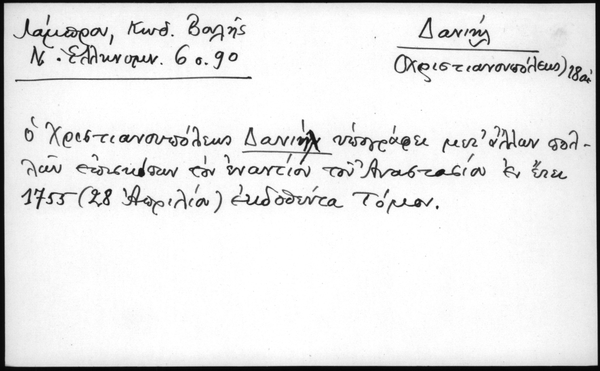 Λάμπρου, Κωδ. Βουλῆς
Ν. Ἑλληνομν. 6 σ. 90
Δανιήλ
(Χριστιανουπόλεως) 18 αἰ
ὁ Χριστιανουπόλεως Δανιήλ ὑπογράφει μετ' ἄλλων πολ-
λῶν ἐπισκόπων τὸν ἐναντίον τοῦ Ἀναστασίου ἐν ἔτει
1755 (28 Ἀπριλίου) ἐκδοθέντα Τόμον.